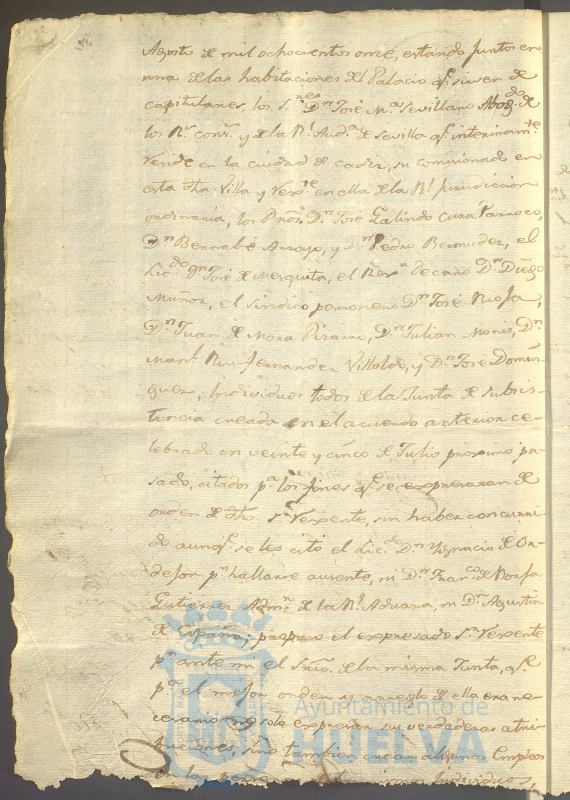 Agosto de mil ochocientos once, estando juntos en
una de las habitaciones del Palacio qe. sirven de
capitulares, los Sres. Dn. José Ma. Sevillano Abogdo. de
los Rs. cons. y de la Rl. Auda. de Sevilla qe. interinamte.
reside en la ciudad de Cadiz, su comisionado en
esta dha. Villa y Regte. en ella de la Rl. Jurisdiccion
ordinaria, los Pros. Dn. José Galindo cura Parroco,
Dn. Bernabé Arroyo, y Dn. Pedro Bermudez, el
Licdo. Dn. José de Mezquita, el Regr. decano Dn. Diego
Muñoz, el sindico personero Dn. José Rioja,
Dn. Juan de Mora Pizarro, Dn. Julian Monis, Dn.
Manl. Ruiz Fernandez Villoldo, y Dn. José Domin-
guez, Individuos todos de la Junta de subsis-
tencia creada en el acuerdo anterior ce-
lebrado en veinte y cinco de Julio proximo pa-
sado, citados pa. los fines qe. se expresaran de
orden de dho. Sr. Regente, sin haber concurri-
do aunqe. se les citó el Licdo. Dn. Ygnacio de Or-
dejon pr. hallarse ausente, ni Dn. Franco. de Borja
Gutierrez Admr. de la Rl. Aduana, ni Dn. Agustin
de España; propuso el expresado Sr. Regente
pr. ante mi el Srio. de la misma Junta, qe.
pa. el mejor orden y arreglo de ella era ne-
cesario no solo expresar sus verdaderas atri-
buciones, sino tambien crear algunos Empleos
en las Individuos,
Ayuntamiento de
HUELVA